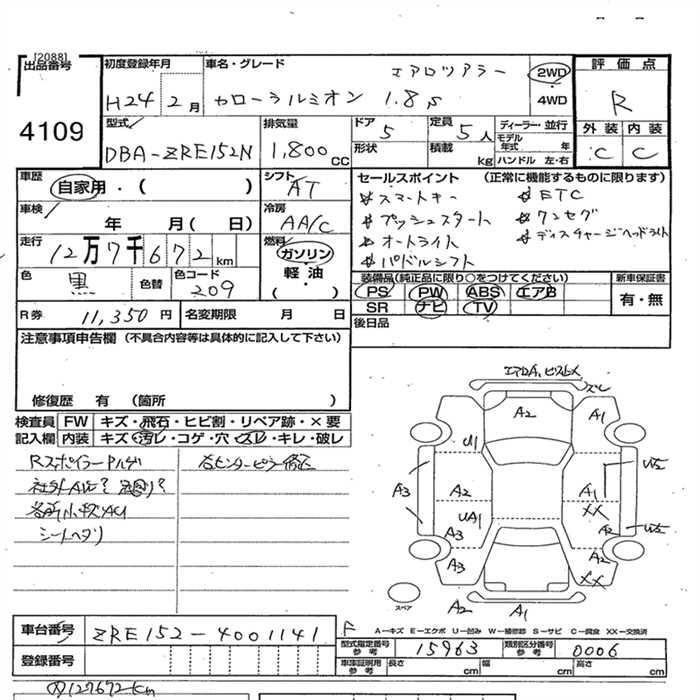 [2088]
出品番号
4109
初度登録年月
H24 2月
車名・グレード
エアロツアラー
カローラルミオン 1.8S
2WD
4WD
評価点
R
外装 内装
C C
型式
DBA-ZRE152N
排気量
1,800 CC
ドア
5
形状
定員
5人
積載
kg
ディーラー・並行
モデル年式 年
ハンドル 左・右
車歴
自家用・( )
シフト
AT
車検
年 月( 日)
冷房
AA/C
走行
12万7千672km
燃料
ガソリン
軽油
( )
色
黒
色替
色コード
209
セールスポイント (正常に機能するものに限ります)
スマートキー
プッシュスタート
オートライト
パドルシフト
ETC
ワンセグ
ディスチャージヘッドライト
装備品(純正品に限り○をつけてください)
PS PW ABS エアB
SR ナビ TV
新車保証書
有・無
後日品
R券 11,350円
名変期限 月 日
注意事項申告欄 (不具合内容等は具体的に記入して下さい)
修復歴 有 (箇所 )
検査員記入欄
FW キズ・飛石・ヒビ割・リペア跡・×要
内装 キズ・汚レ・コゲ・穴・スレ・キレ・破レ
各所小キズAU
シートヘタリ
右センターピラー修正
ズレ
A2
A1
U1
A3
A2
A1
XX
UA1
A3
A2
A2
A3
XX
A2
A1
スペア
車台番号
ZRE152-4001141
登録番号
F
A=キズ E=エクボ U=凹み W=補修跡 S=サビ C=腐食 XX=交換済
型式指定番号 参考
15963
類別区分番号 参考
0006
車庫証明用 参考
長さ cm
幅 cm
高さ cm
127672km